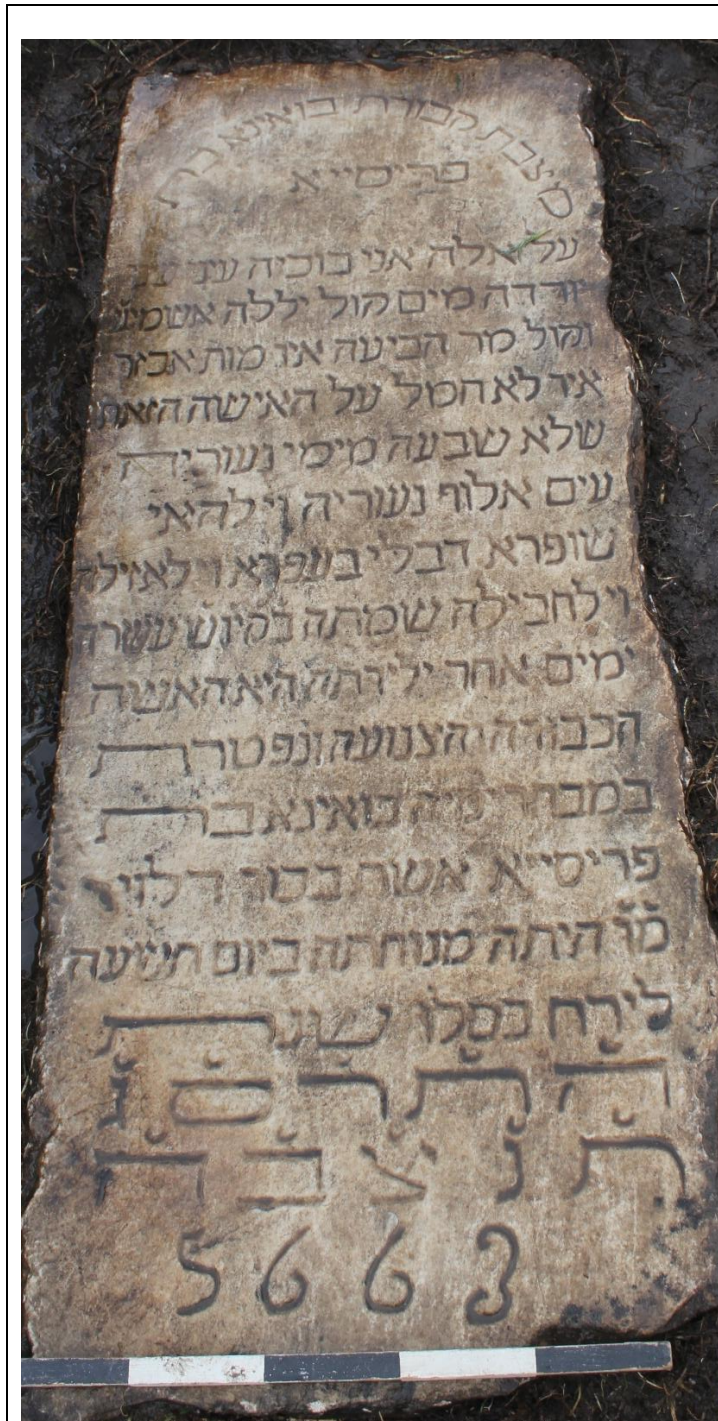 מצבת קבורת בואינא בת
פריסייא
על אלה אני בוכיה עיני עיני
יורדה מים קול יללה אשמיע
וקול מר הביעה איך מות אכזר
איך לא חמל על האישה הזאת
שלא שבעה מימי נעוריה
עים אלוף נעוריה ויל להאי
שופרא דבלי בעפרא ויל לאזילה
ויל לחבילה שמתה עשרה
ימים אחר לידתה היא האשה
הכבודה הצנועה ונפטרת
במבחר ימיה בואינא ברת
פריסייא אשת בכור הלוי
היתה מנוחתה ביום תשעה
לירח כסלו שנת
התרסג
תנצבה
5663